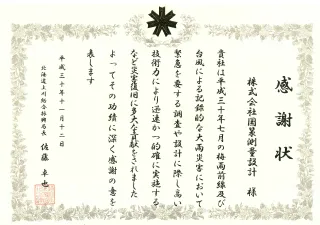 感謝状
株式会社国策測量設計 様
貴社は平成三十年七月の梅雨前線及び
台風による記録的な大雨災害において
緊急を要する調査や設計に際し高い
技術力により迅速かつ的確に実施する
など災害復旧に多大な貢献をされました
よってその功績に深く感謝の意を
表します
平成三十年十一月十二日
北海道上川総合振興局長 佐藤 卓也